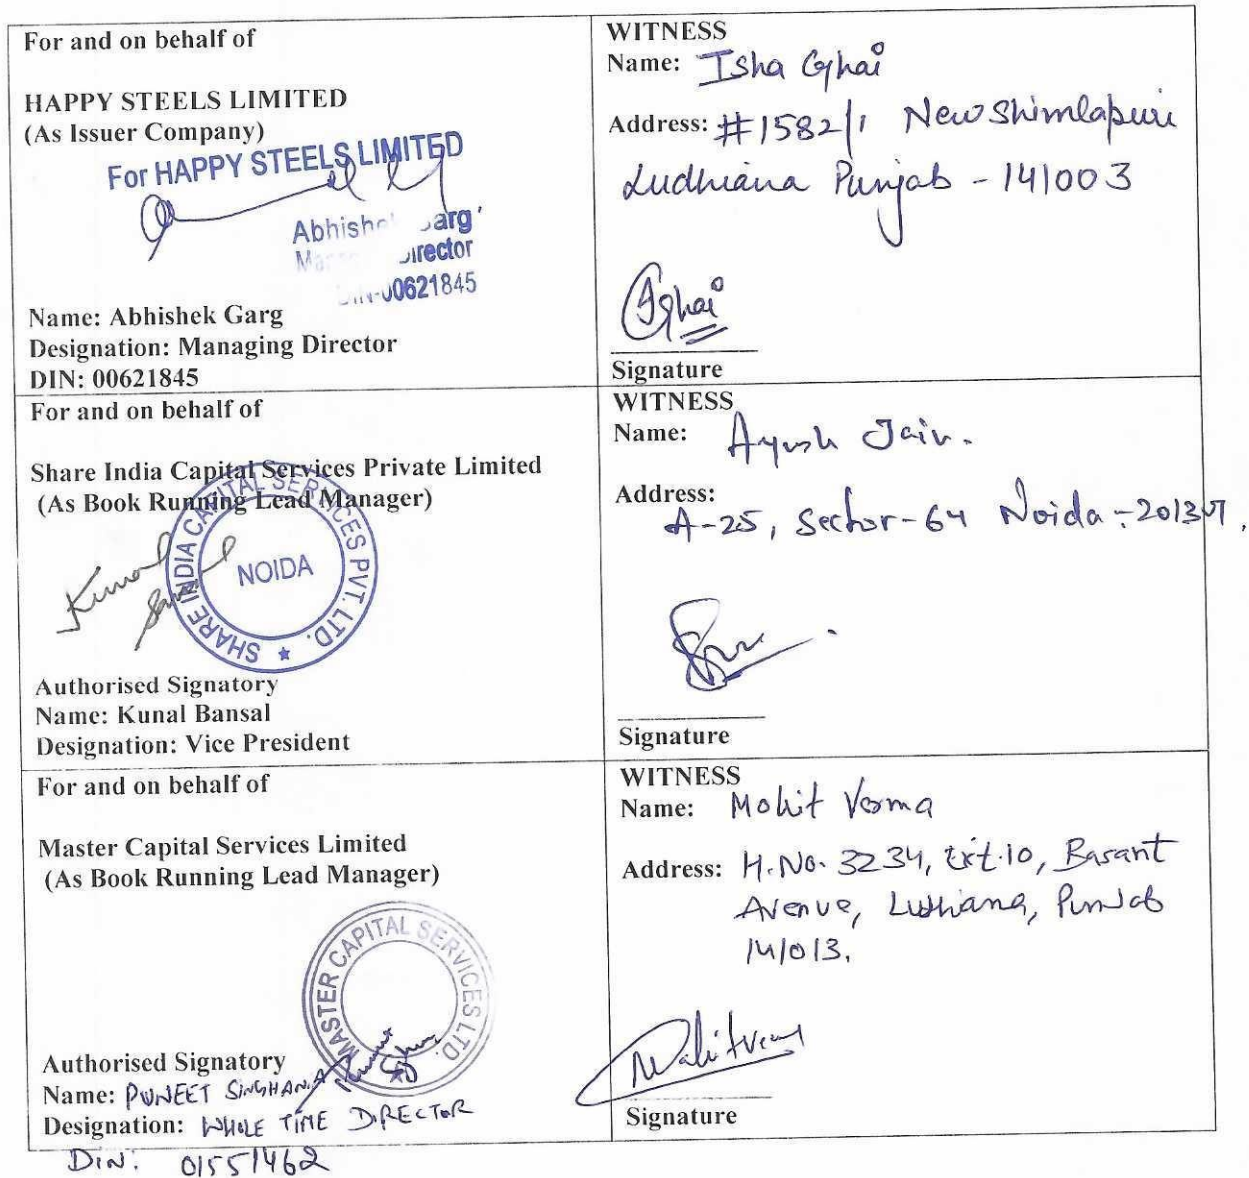 For and on behalf of
HAPPY STEELS LIMITED
(As Issuer Company)
For HAPPY STEELS LIMITED
Abhishe arg
Ma irector
DIN-00621845
Name: Abhishek Garg
Designation: Managing Director
DIN: 00621845
WITNESS
Name: Isha Ghai
Address: #1582/1 New Shimlapuri
Ludhiana Punjab - 141003
Ighai
Signature
For and on behalf of
Share India Capital Services Private Limited
(As Book Running Lead Manager)
Kunal
SHARE INDIA CAPITAL SERVICES PVT. LTD. ★
NOIDA
Authorised Signatory
Name: Kunal Bansal
Designation: Vice President
WITNESS
Name: Ayush Jain.
Address:
A-25, Sector-64 Noida-201301.
Signature
For and on behalf of
Master Capital Services Limited
(As Book Running Lead Manager)
MASTER CAPITAL SERVICES LTD.
Authorised Signatory
Name: PUNEET SINGHANIA
Designation: WHOLE TIME DIRECTOR
DIN: 01551462
WITNESS
Name: Mohit Verma
Address: H.No. 3234, Ext.10, Basant
Avenue, Ludhiana, Punjab
141013.
Signature